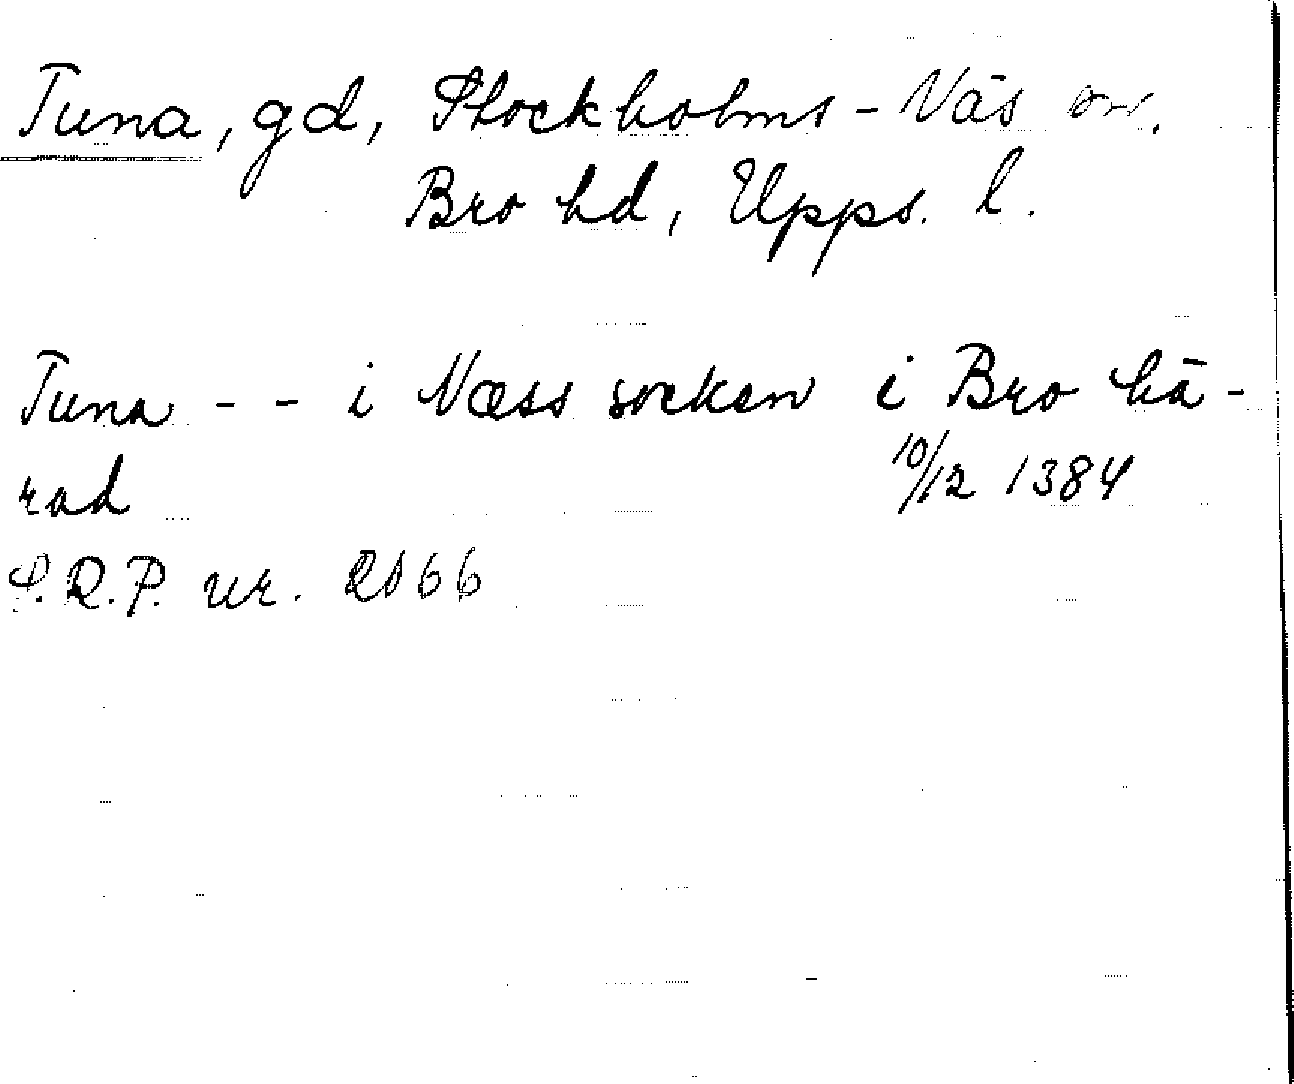 Tuna, gd, Stockholms-Näs sn.
Bro hd, Upps. l.
Tuna -- i Næss socken i Bro hä-
rad 10/12 1384
S.R.P. nr. 2166